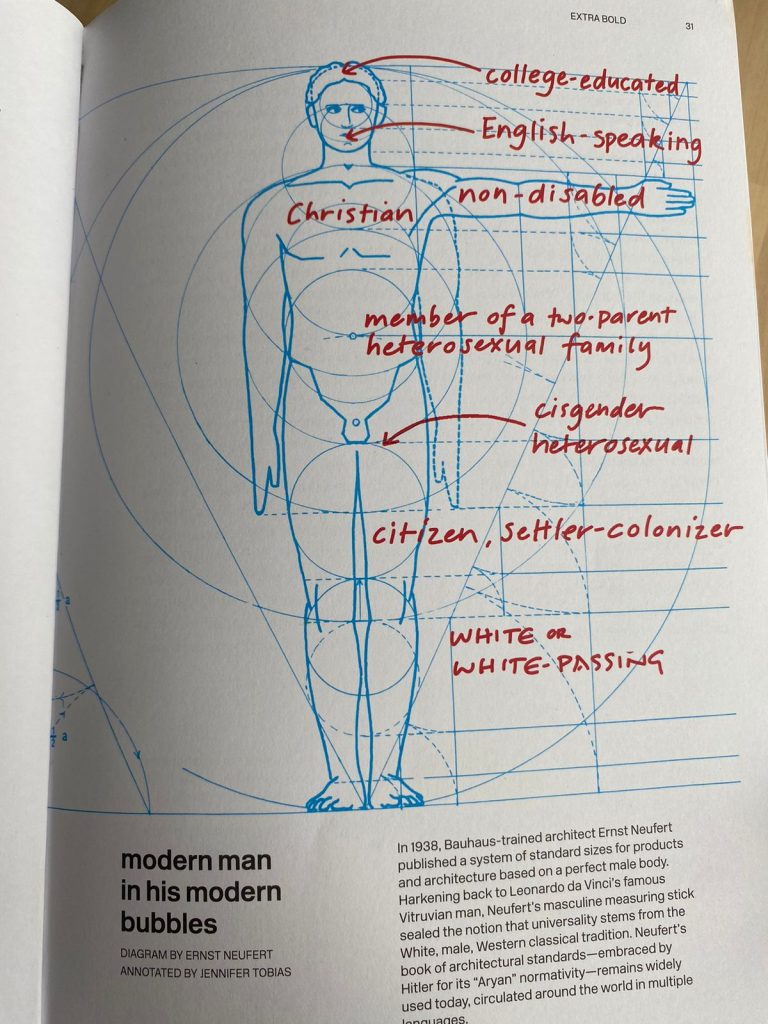 EXTRA BOLD
31
college-educated
English-speaking
non-disabled
Christian
member of a two-parent
heterosexual family
cisgender
heterosexual
citizen, settler-colonizer
WHITE OR
WHITE-PASSING
a
1/2 a
modern man
in his modern
bubbles
DIAGRAM BY ERNST NEUFERT
ANNOTATED BY JENNIFER TOBIAS
In 1938, Bauhaus-trained architect Ernst Neufert
published a system of standard sizes for products
and architecture based on a perfect male body.
Harkening back to Leonardo da Vinci's famous
Vitruvian man, Neufert's masculine measuring stick
sealed the notion that universality stems from the
White, male, Western classical tradition. Neufert's
book of architectural standards—embraced by
Hitler for its “Aryan” normativity—remains widely
used today, circulated around the world in multiple
languages.